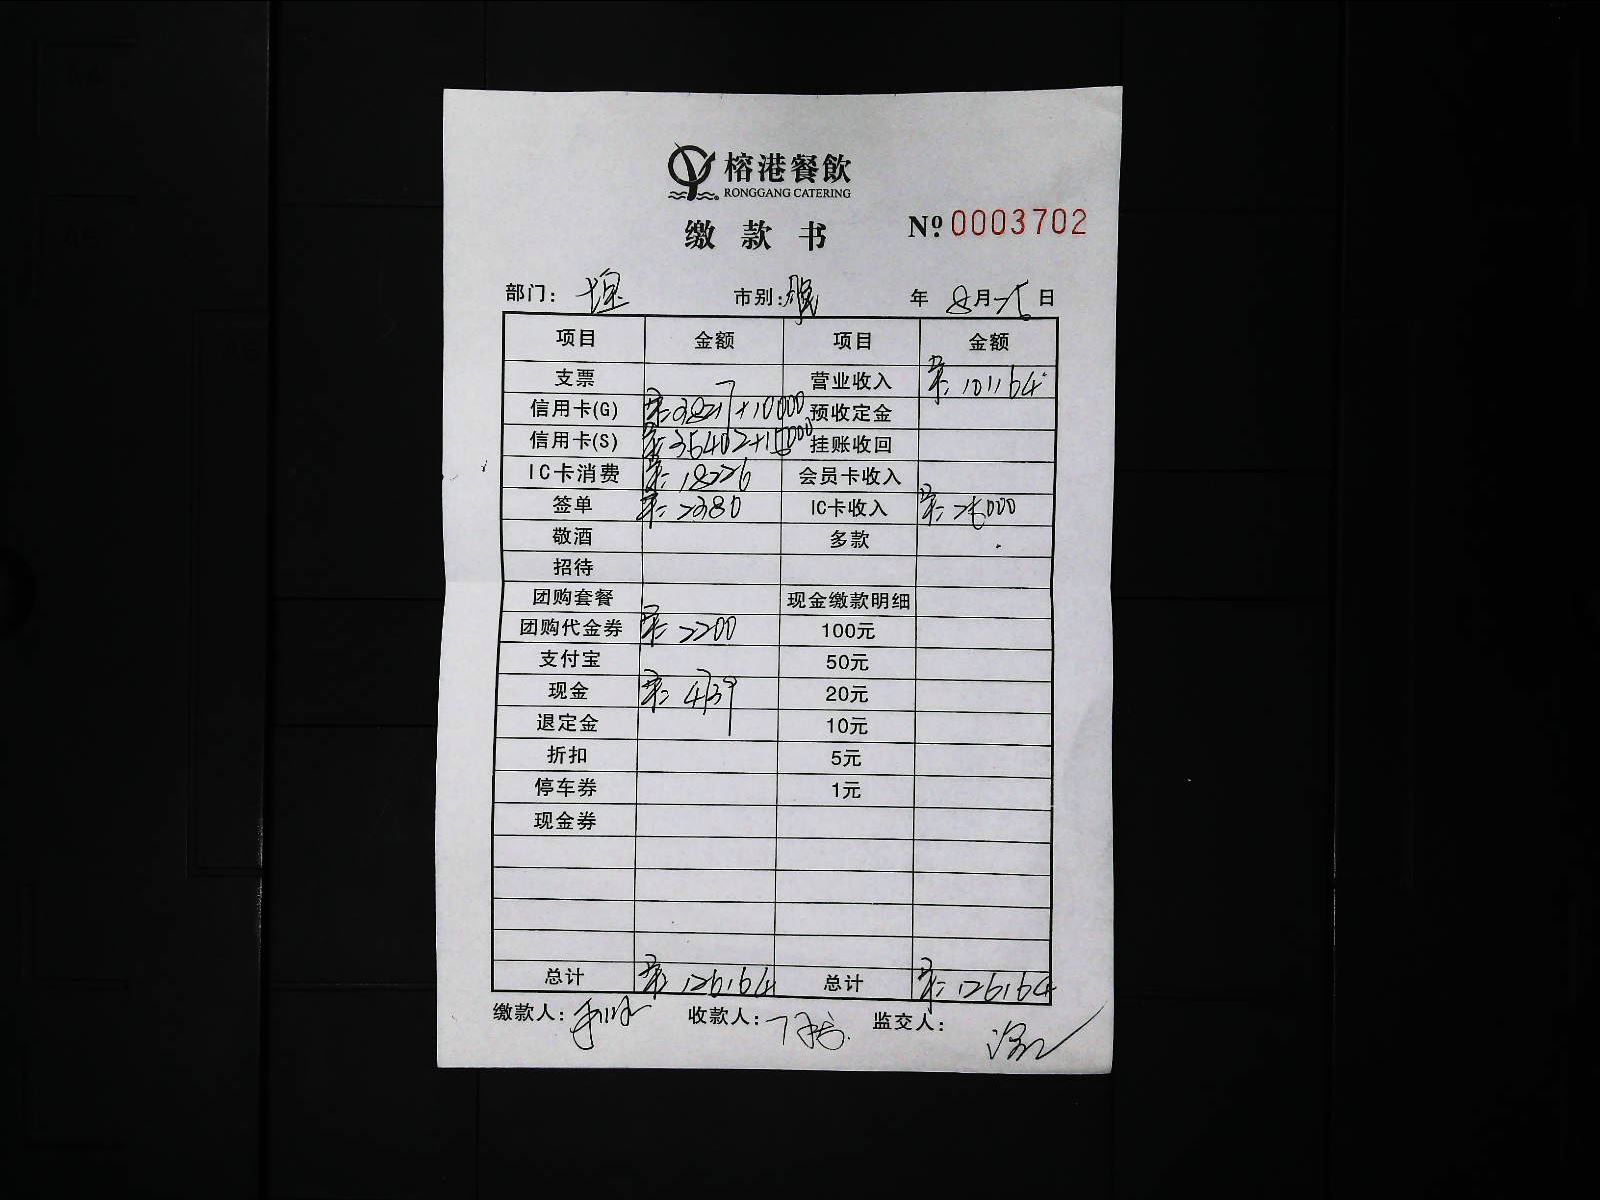 榕港餐飲
RONGGANG CATERING
缴款书
Nº 0003702
部门: 市别: 年 8月 日
项目 金额 项目 金额
支票 营业收入 101164
信用卡(G) 38217+10000 预收定金
信用卡(S) 35402+15000 挂账收回
IC卡消费 18226 会员卡收入
签单 2380 IC卡收入 25000
敬酒 多款
招待
团购套餐 现金缴款明细
团购代金券 2200 100元
支付宝 50元
现金 4739 20元
退定金 10元
折扣 5元
停车券 1元
现金券
总计 126164 总计 126164
缴款人: 收款人: 监交人: